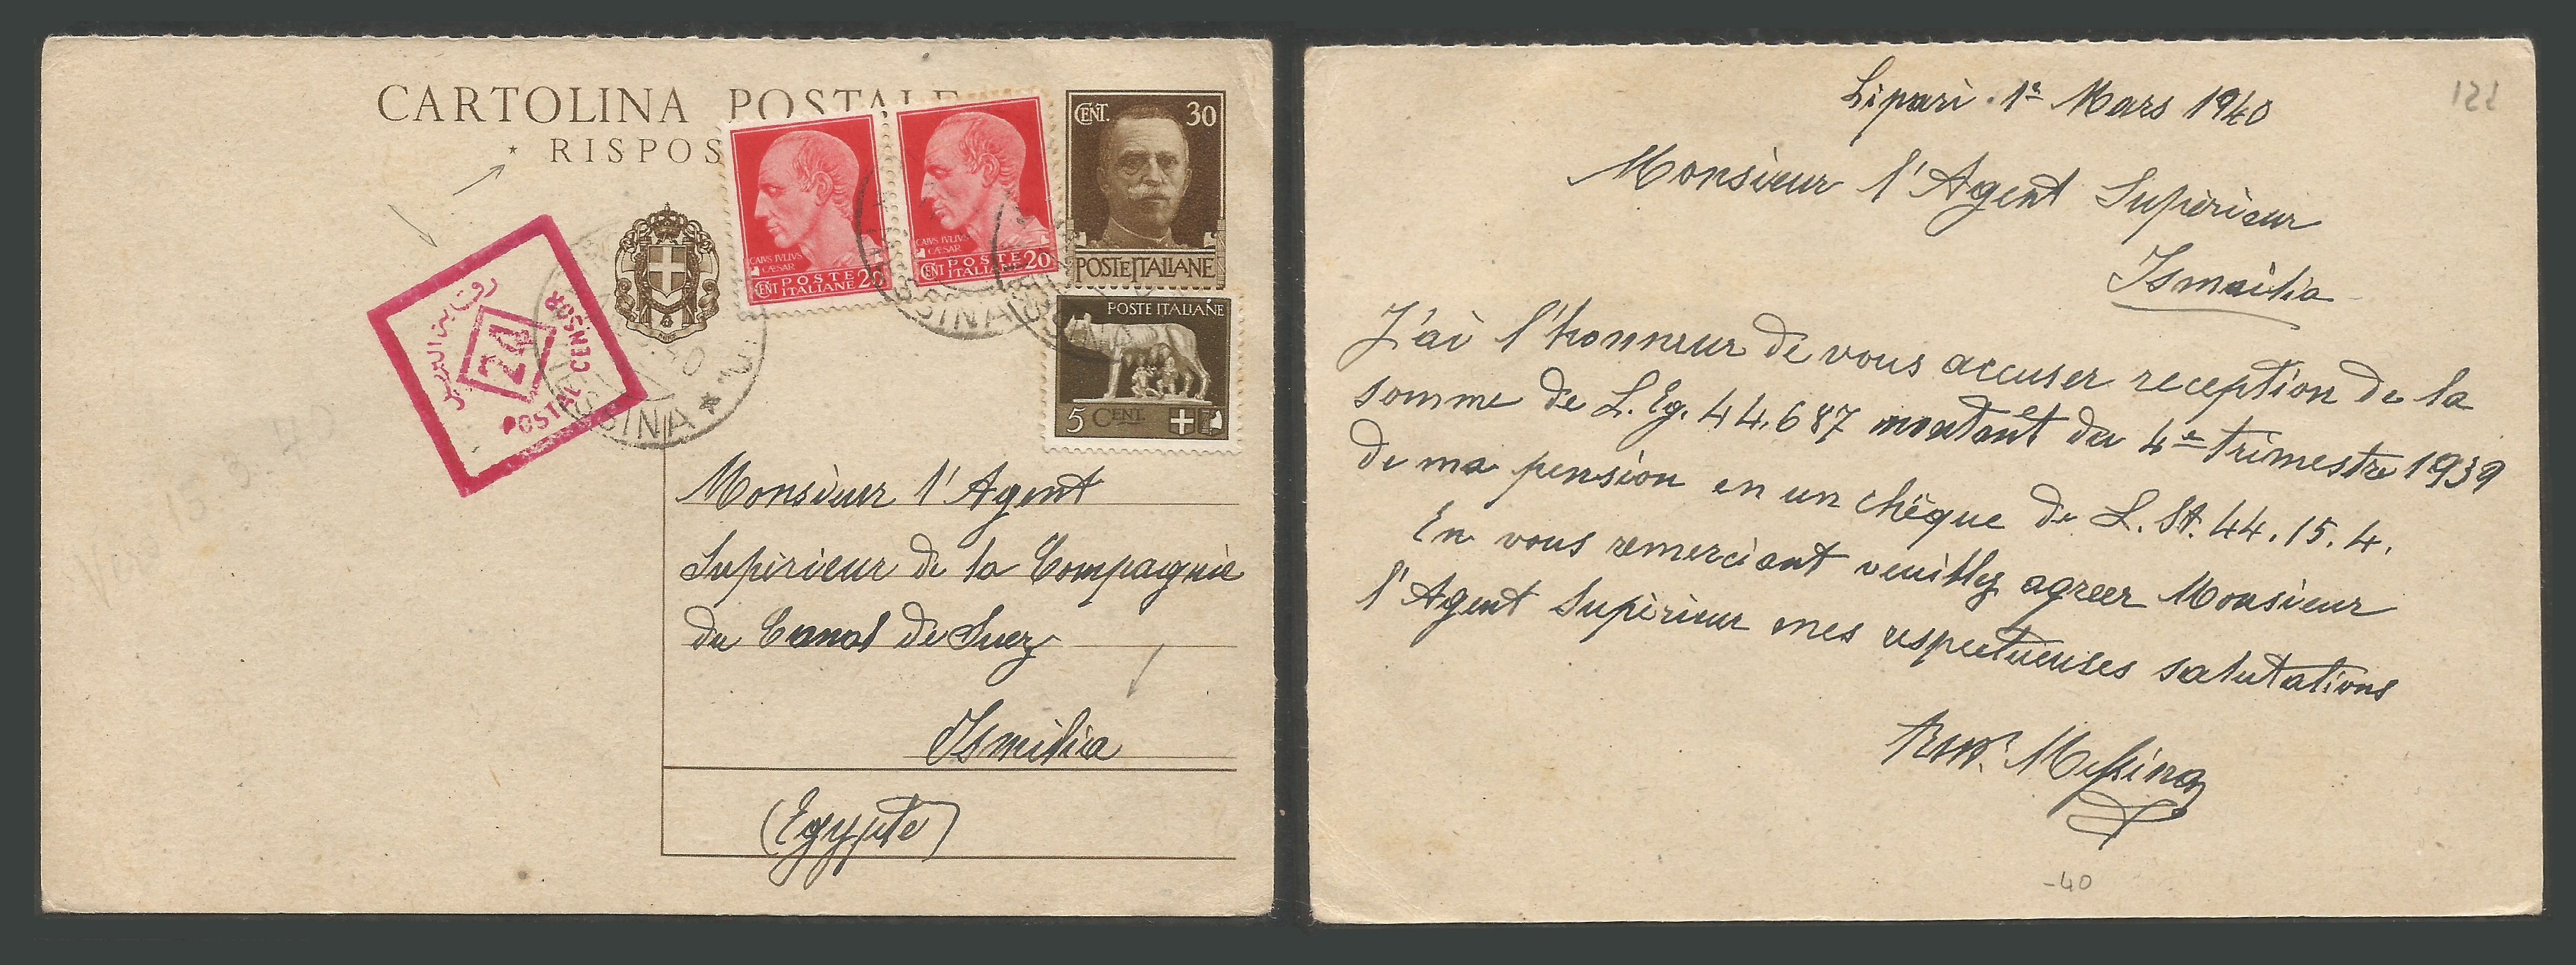 CARTOLINA POSTALE
* RISPOS
CENT. 30
POSTE ITALIANE
CAIVS IVLIVS
CÆSAR
CENT POSTE
ITALIANE 2
CAIVS IVLIVS
CÆSAR
CENT POSTE
ITALIANE 20
POSTE ITALIANE
5 CENT.
24
POSTAL CENSOR
SINA
Monsieur l'Agent
Supérieur de la Compagnie
du Canal de Suez
Ismilia
(Egypte)
Lipari. 1er Mars 1940
122
Monsieur l'Agent Supérieur
Ismailia
J'ai l'honneur de vous accuser reception de la
somme de L. Eg. 44.687 montant du 4e trimestre 1939
de ma pension en un chèque de L. St. 44.15.4.
En vous remerciant veuillez agreer Monsieur
l'Agent Supérieur mes respectueuses salutations
Messina
-40